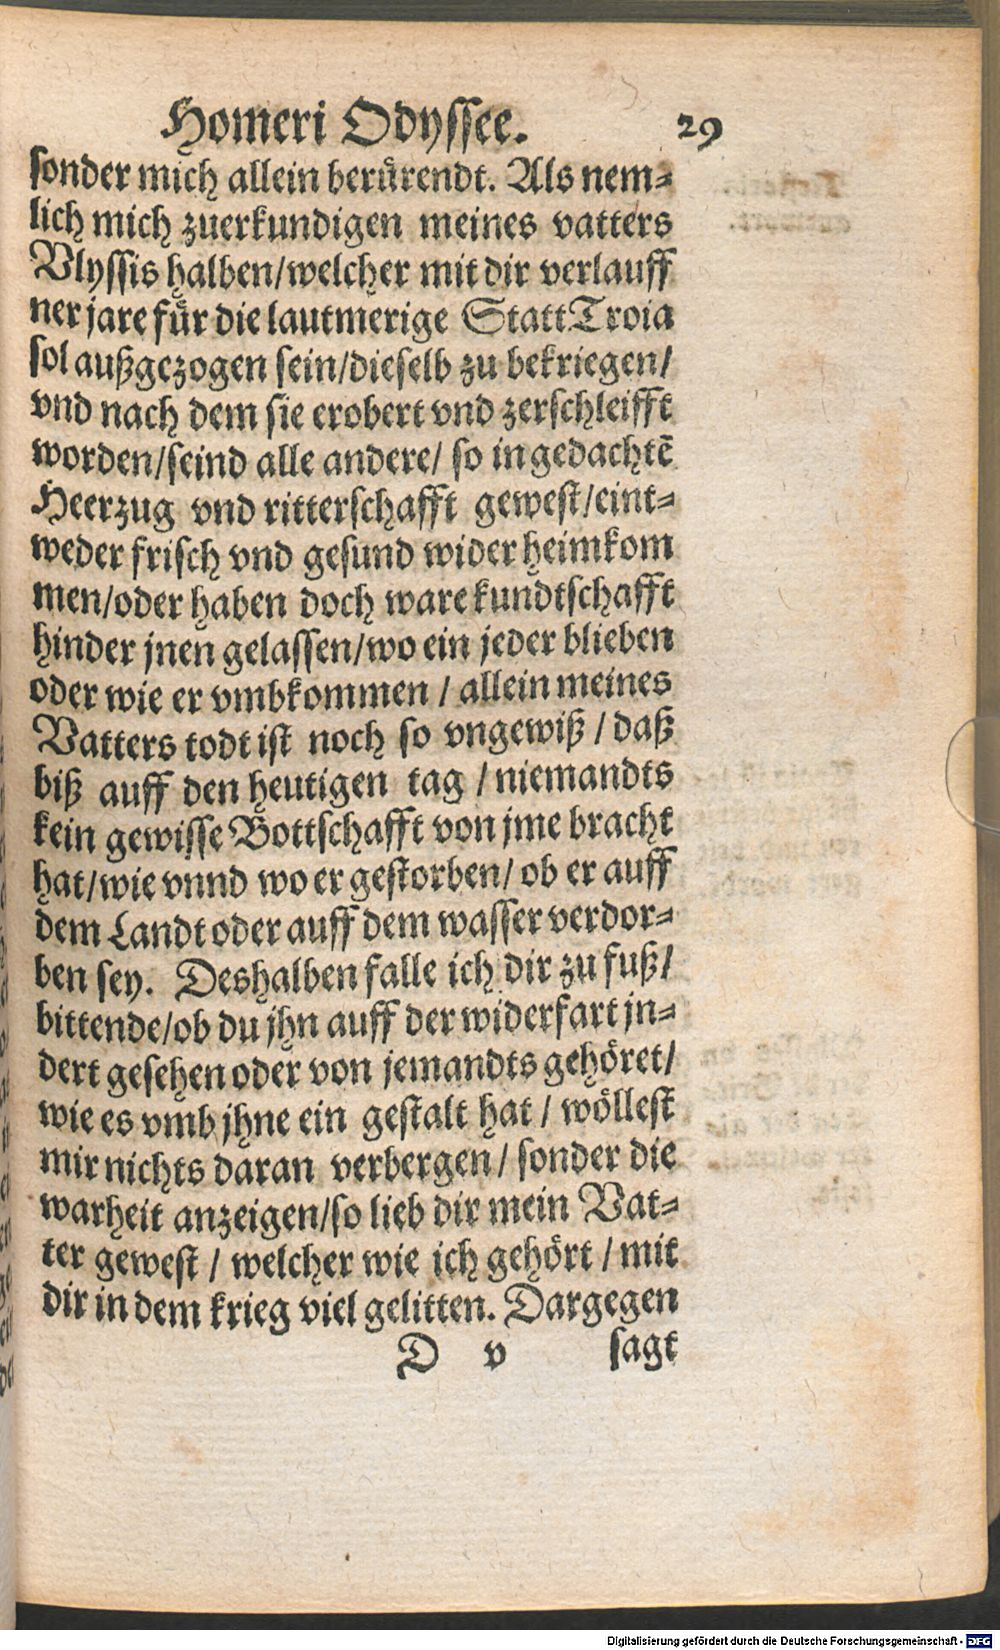 Homeri Odyssee. 29
sonder mich allein berürendt. Als nem⸗
lich mich zuerkundigen meines vatters
Vlyssis halben/welcher mit dir verlauff
ner jare für die lautmerige Statt Troia
sol außgezogen sein/dieselb zu bekriegen/
vnd nach dem sie erobert vnd zerschleifft
worden/seind alle andere/ so in gedachtē
Heerzug vnd ritterschafft gewest/eint⸗
weder frisch vnd gesund wider heimkom
men/oder haben doch ware kundtschafft
hinder jnen gelassen/wo ein jeder blieben
oder wie er vmbkommen / allein meines
Vatters todt ist noch so vngewiß / daß
biß auff den heutigen tag / niemandts
kein gewisse Bottschafft von jme bracht
hat/wie vnnd wo er gestorben/ ob er auff
dem Landt oder auff dem wasser verdor⸗
ben sey. Deshalben falle ich dir zu fuß/
bittende/ob du jhn auff der widerfart jn⸗
dert gesehen oder von jemandts gehöret/
wie es vmb jhne ein gestalt hat / wöllest
mir nichts daran verbergen/ sonder die
warheit anzeigen/so lieb dir mein Vat⸗
ter gewest / welcher wie ich gehört / mit
dir in dem krieg viel gelitten. Dargegen
D v sagt
Digitalisierung gefördert durch die Deutsche Forschungsgemeinschaft - DFG